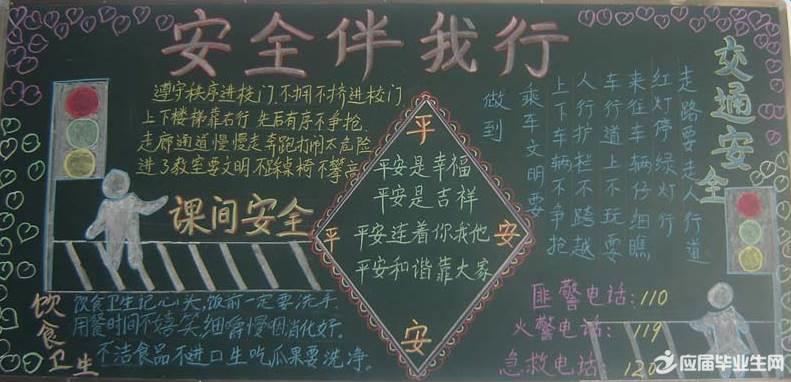 安全伴我行
遵守秩序进校门,不拥不挤进校门
上下楼梯靠右行 先后有序不争抢
走廊通道慢慢走奔跑打闹太危险
进了教室要文明 不踩桌椅不攀高
课间安全
平
平
安
安
平安是幸福
平安是吉祥
平安连着你我他
平安和谐靠大家
交通安全
走路要走人行道
红灯停绿灯行
来往车辆仔细瞧
车行道上不玩耍
人行护栏不跨越
上下车辆不争抢
乘车文明要
做到
饮食卫生
饮食卫生记心头,饭前一定要洗手
用餐时间不嬉笑 细嚼慢咽消化好.
不洁食品不进口生吃瓜果要洗净.
匪警电话:110
火警电话:119
急救电话 120
应届毕业生网